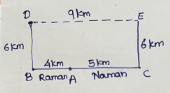 D 9km E
6km 6km
4km 5km
B Raman A Naman C